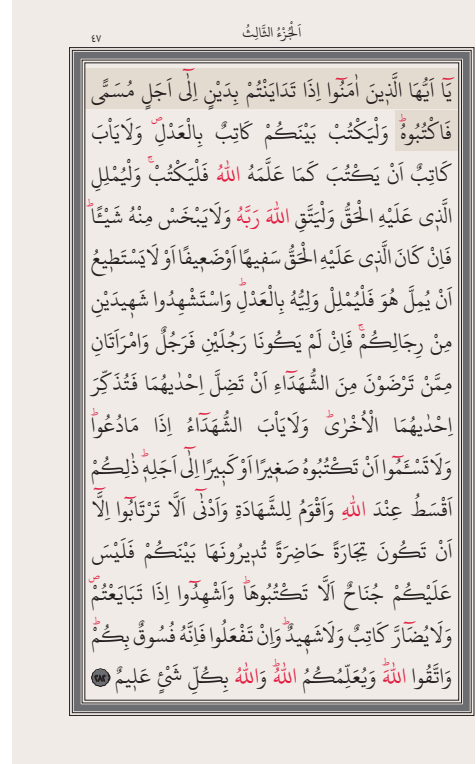 اَلْجُزْءُ الثَّالِثُ
٤٧
يَٓا اَيُّهَا الَّذ۪ينَ اٰمَنُٓوا اِذَا تَدَايَنْتُمْ بِدَيْنٍ اِلٰٓى اَجَلٍ مُسَمًّى
فَاكْتُبُوهُۜ وَلْيَكْتُبْ بَيْنَكُمْ كَاتِبٌ بِالْعَدْلِۖ وَلَايَأْبَ
كَاتِبٌ اَنْ يَكْتُبَ كَمَا عَلَّمَهُ اللّٰهُ فَلْيَكْتُبْۚ وَلْيُمْلِلِ
الَّذ۪ى عَلَيْهِ الْحَقُّ وَلْيَتَّقِ اللّٰهَ رَبَّهُ وَلَايَبْخَسْ مِنْهُ شَيْـًٔاۜ
فَاِنْ كَانَ الَّذ۪ى عَلَيْهِ الْحَقُّ سَف۪يهًا اَوْ ضَع۪يفًا اَوْ لَايَسْتَط۪يعُ
اَنْ يُمِلَّ هُوَ فَلْيُمْلِلْ وَلِيُّهُ بِالْعَدْلِۜ وَاسْتَشْهِدُوا شَه۪يدَيْنِ
مِنْ رِجَالِكُمْۚ فَاِنْ لَمْ يَكُونَا رَجُلَيْنِ فَرَجُلٌ وَامْرَاَتَانِ
مِمَّنْ تَرْضَوْنَ مِنَ الشُّهَدَٓاءِ اَنْ تَضِلَّ اِحْدٰيهُمَا فَتُذَكِّرَ
اِحْدٰيهُمَا الْاُخْرٰىۜ وَلَايَأْبَ الشُّهَدَٓاءُ اِذَا مَادُعُواۜ
وَلَاتَسْـَٔمُٓوا اَنْ تَكْتُبُوهُ صَغ۪يرًا اَوْ كَب۪يرًا اِلٰٓى اَجَلِه۪ۜ ذٰلِكُمْ
اَقْسَطُ عِنْدَ اللّٰهِ وَاَقْوَمُ لِلشَّهَادَةِ وَاَدْنٰٓى اَلَّا تَرْتَابُٓوا اِلَّٓا
اَنْ تَكُونَ تِجَارَةً حَاضِرَةً تُد۪يرُونَهَا بَيْنَكُمْ فَلَيْسَ
عَلَيْكُمْ جُنَاحٌ اَلَّا تَكْتُبُوهَاۜ وَاَشْهِدُٓوا اِذَا تَبَايَعْتُمْۖ
وَلَايُضَٓارَّ كَاتِبٌ وَلَاشَه۪يدٌۜ وَاِنْ تَفْعَلُوا فَاِنَّهُ فُسُوقٌ بِكُمْۜ
وَاتَّقُوا اللّٰهَۜ وَيُعَلِّمُكُمُ اللّٰهُۜ وَاللّٰهُ بِكُلِّ شَيْءٍ عَل۪يمٌ ﴿٢٨٢﴾